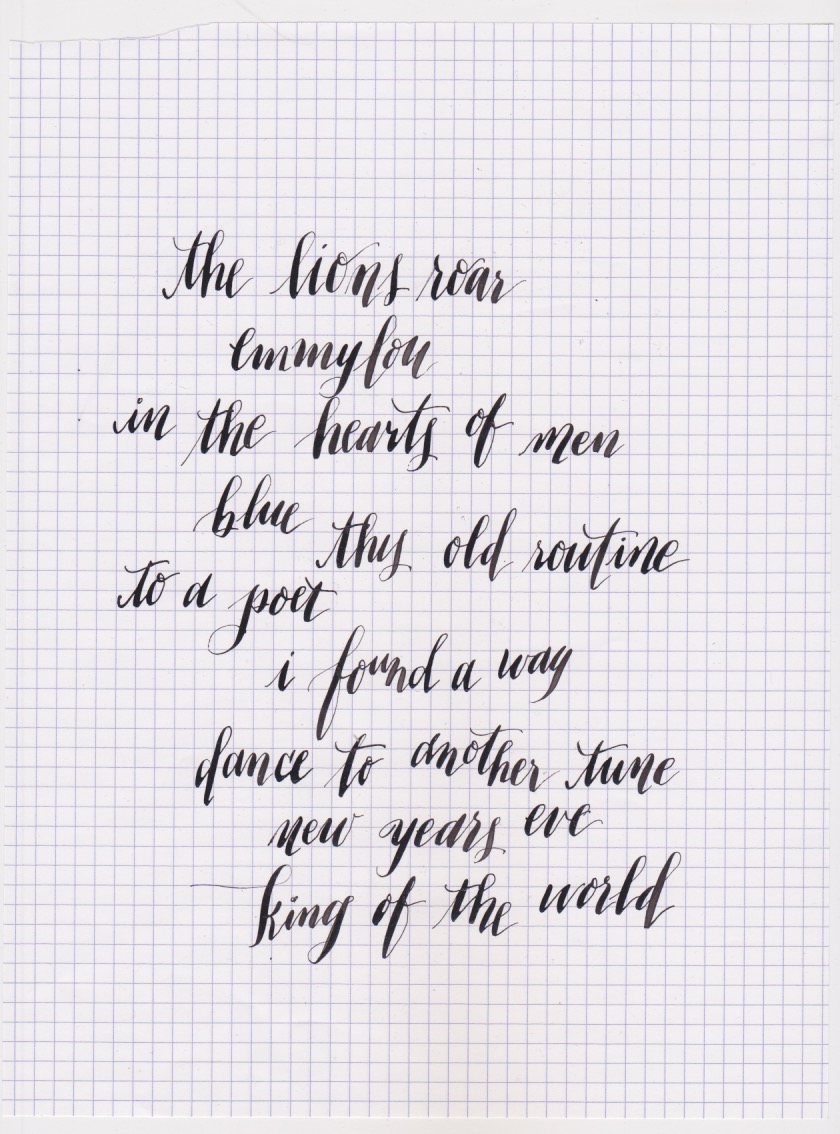 the lions roar
emmylou
in the hearts of men
blue
this old routine
to a poet
i found a way
dance to another tune
new years eve
king of the world